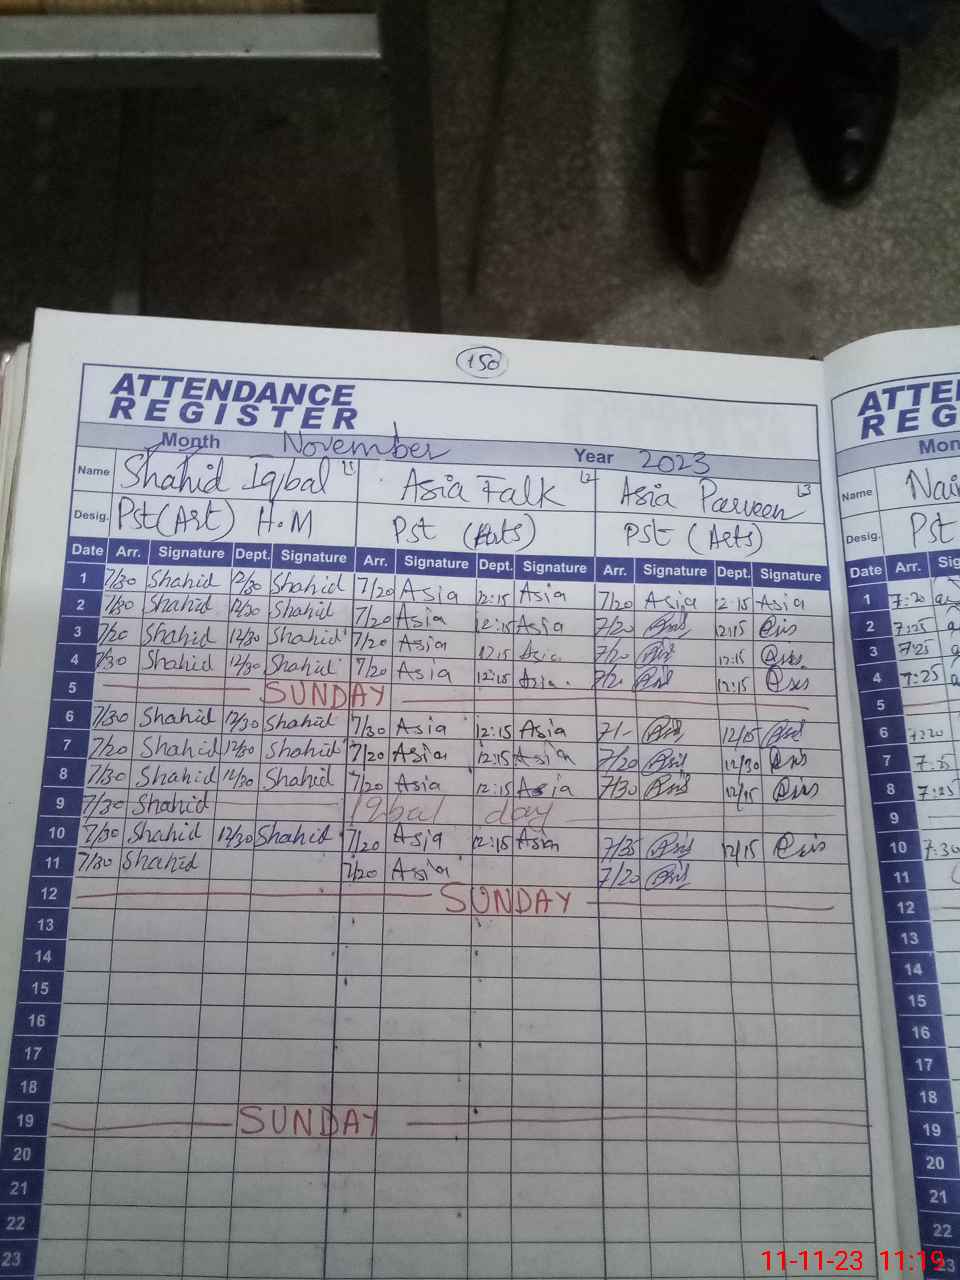 150
ATTENDANCE
REGISTER
Month November Year 2023
Name Shahid Iqbal L1 Asia Falk L2 Asia Parveen L3
Desig. Pst(Art) H.M Pst (Arts) Pst (Arts)
Date Arr. Signature Dept. Signature Arr. Signature Dept. Signature Arr. Signature Dept. Signature
1 7/30 Shahid 12/30 Shahid 7/20 Asia 12:15 Asia 7/20 Asia 12:15 Asia
2 7/30 Shahid 12/30 Shahid 7/20 Asia 12:15 Asia 7/20 12:15
3 7/20 Shahid 12/30 Shahid 7/20 Asia 12:15 Asia 7/20 12:15
4 7/30 Shahid 12/30 Shahid 7/20 Asia 12:15 Asia 7/2 12:15
5 SUNDAY
6 7/30 Shahid 12/30 Shahid 7/30 Asia 12:15 Asia 7/- 12/15
7 7/20 Shahid 12/30 Shahid 7/20 Asia 12:15 Asia 7/20 12/30
8 7/30 Shahid 12/30 Shahid 7/20 Asia 12:15 Asia 7/30 12/15
9 7/30 Shahid Iqbal day
10 7/30 Shahid 12/30 Shahid 7/20 Asia 12:15 Asia 7/35 12/15
11 7/30 Shahid 7/20 Asia 7/20
12 SUNDAY
13
14
15
16
17
18
19 SUNDAY
20
21
22
23
ATTE
REG
Mon
Name Nai
Desig. Pst
Date Arr. Si
1 7:20
2 7:25
3 7:25
4 7:25
5
6 7:20
7 7:25
8 7:25
9
10 7:30
11
12
13
14
15
16
17
18
19
20
21
22
23
11-11-23 11:19